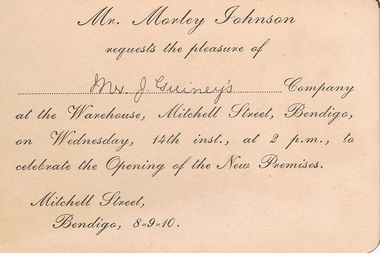 Mr. Morley Johnson
requests the pleasure of
Mr. J. Guiney's Company
at the Warehouse, Mitchell Street, Bendigo,
on Wednesday, 14th inst., at 2 p.m., to
celebrate the Opening of the New Premises.
Mitchell Street,
Bendigo, 8-9-10.